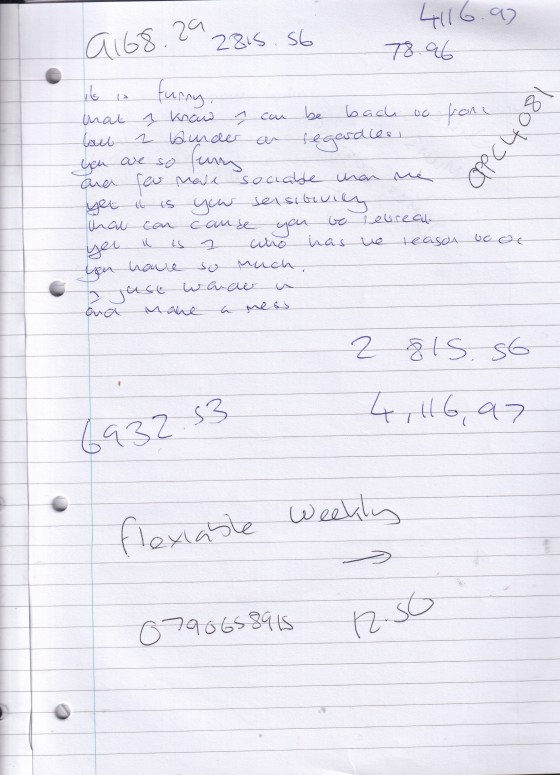 4116.97
9168.29 2815.56
78.96
it is funny.
that I know I can be back to front
but I blunder on regardless
OPC4081
you are so funny
and far more sociable than me
yet it is your sensitivity
that can cause you to retreat
yet it is I who has the reason to
you have so much.
I just wander in
and make a mess
2 815.56
6932.53
4,116,97
flexiable weekly
→
0790658915 12.50